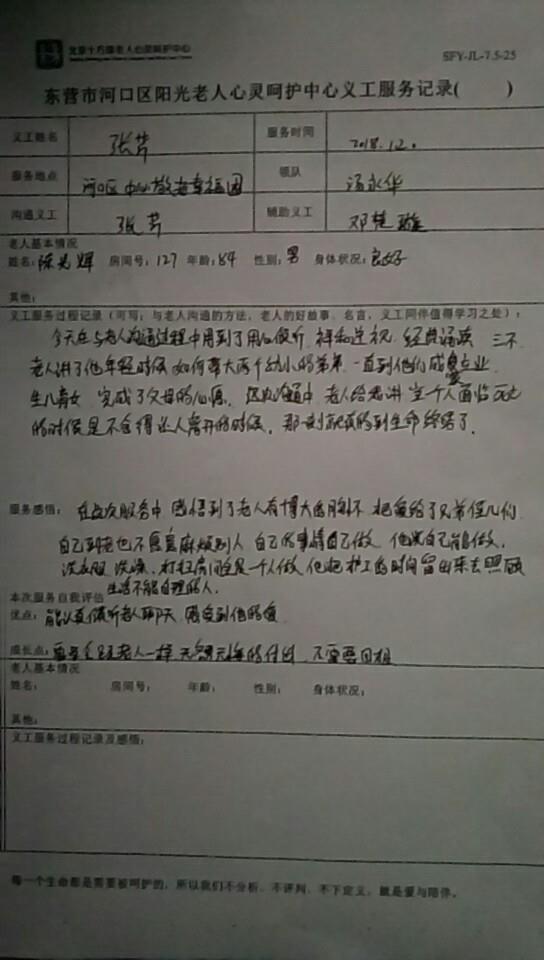 北京十方缘老人心灵呵护中心
SFY-JL-7.5-25
东营市河口区阳光老人心灵呵护中心义工服务记录( )
义工姓名 张芹 服务时间 2018.12.
服务地点 河口区中心敬老幸福园 领队 汤永华
沟通义工 张芹 辅助义工 邓楚璇
老人基本情况
姓名：陈光辉 房间号：127 年龄：84 性别：男 身体状况：良好
其他：
义工服务过程记录（可写：与老人沟通的方法，老人的好故事、名言，义工同伴值得学习之处）：
今天在与老人沟通过程中用到了用心倾听 祥和注视 经典诵读 三不
老人讲了他年轻时候如何带大两个幼小的弟弟 一直到他们成家立业
生儿育女 完成了父母的心愿。这次沟通中 老人给我讲 当个人面临死亡
的时候是不舍得让人离开的时候，那一刻就真的到生命终结了。
服务感悟：在这次服务中 感悟到了老人有博大的胸怀 把爱给了兄弟侄儿们
自己到老也不愿意麻烦别人 自己的事情自己做 他说自己能做，
洗衣服 洗澡、打扫房间这是一个人做 他把护工的时间留出来去照顾
生活不能自理的人。
本次服务自我评估
优点：能认真倾听老人聊天 感受到他的爱
成长点：要学会跟老人一样 无怨无悔的付出 不需要回报
老人基本情况
姓名： 房间号： 年龄： 性别： 身体状况：
其他：
义工服务过程记录及感悟：
每一个生命都是需要被呵护的，所以我们不分析、不评判、不下定义，就是爱与陪伴。